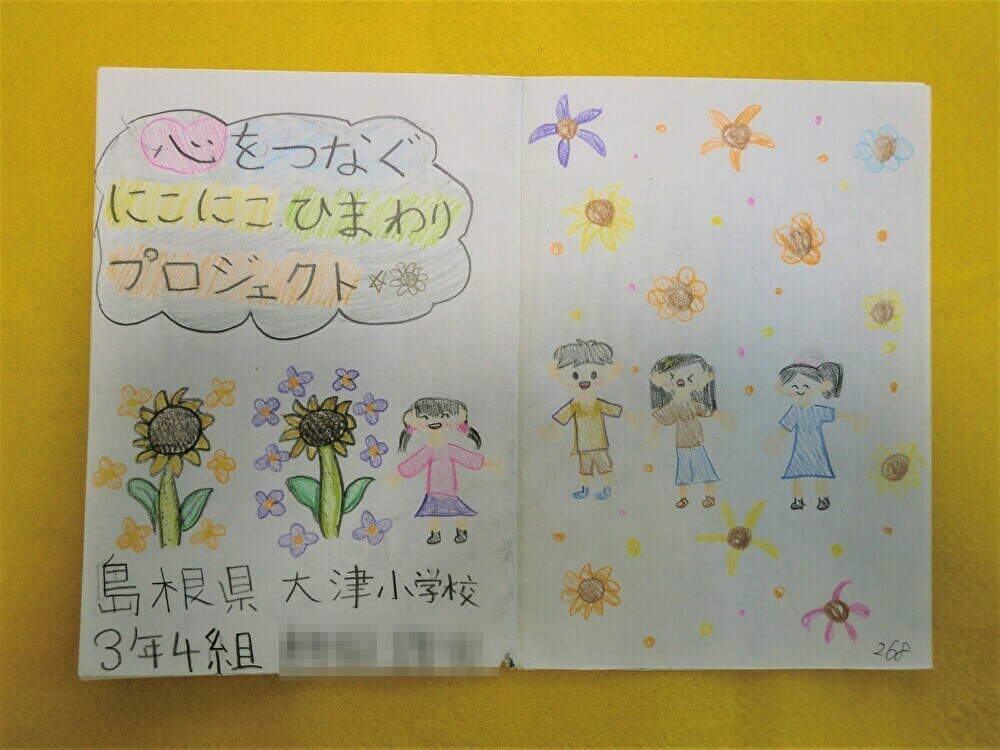 心をつなぐ
にこにこひまわり
プロジェクト
島根県 大津小学校
3年4組
268